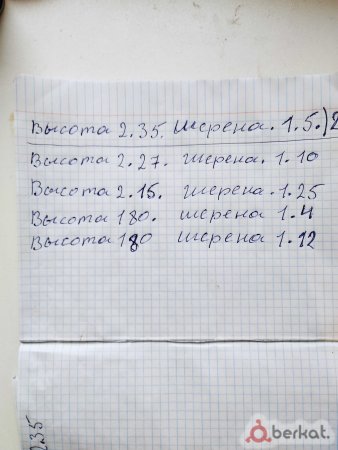 Высота 2.35. шерена. 1.5.)2
Высота 2.27. шерена. 1.10
Высота 2.15. шерена. 1.25
Высота 180. шерена 1.4
Высота 180 шерена 1.12
2.35
berkat.